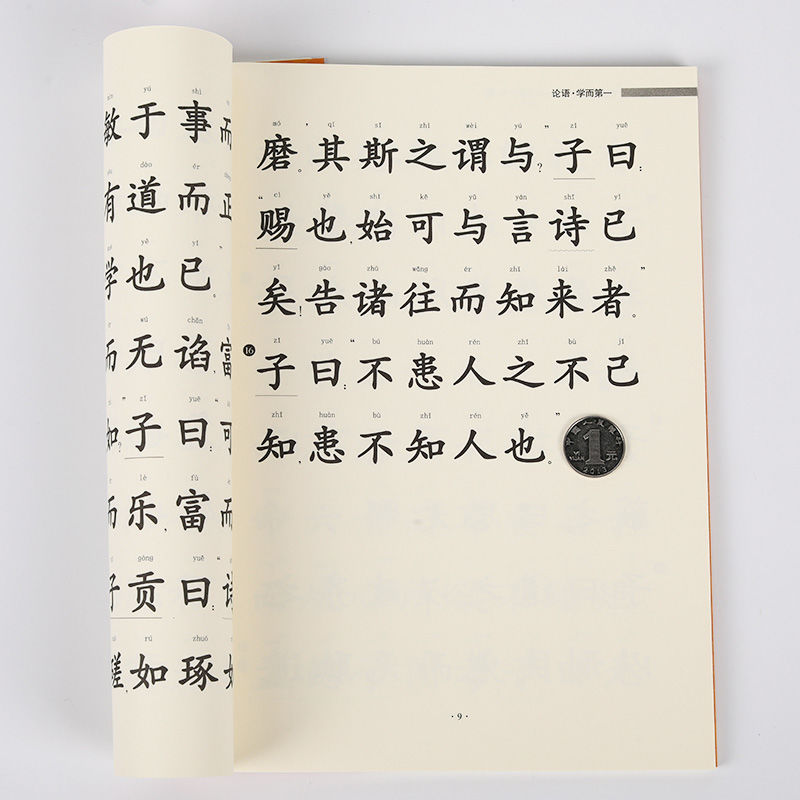 yú shì
敏于事而
dào ér
有道而正
yě yǐ
学也已。
wú chǎn
而无谄,富
zǐ yuē
如?”子曰:“可
lè fù
而乐,富而
gòng yuē
子贡曰:“诗
rú zhuó
磋,如琢如
论语·学而第一
mó qí sī zhī wèi yú zǐ yuē
磨。’其斯之谓与?”子曰:
cì yě shǐ kě yǔ yán shī yǐ
“赐也,始可与言诗已
yǐ gào zhū wǎng ér zhī lái zhě
矣!告诸往而知来者。”
zǐ yuē bú huàn rén zhī bù jǐ
16 子曰:“不患人之不己
zhī huàn bù zhī rén yě
知,患不知人也。”
中国人民银行
1 元
YI YUAN
2013
·9·